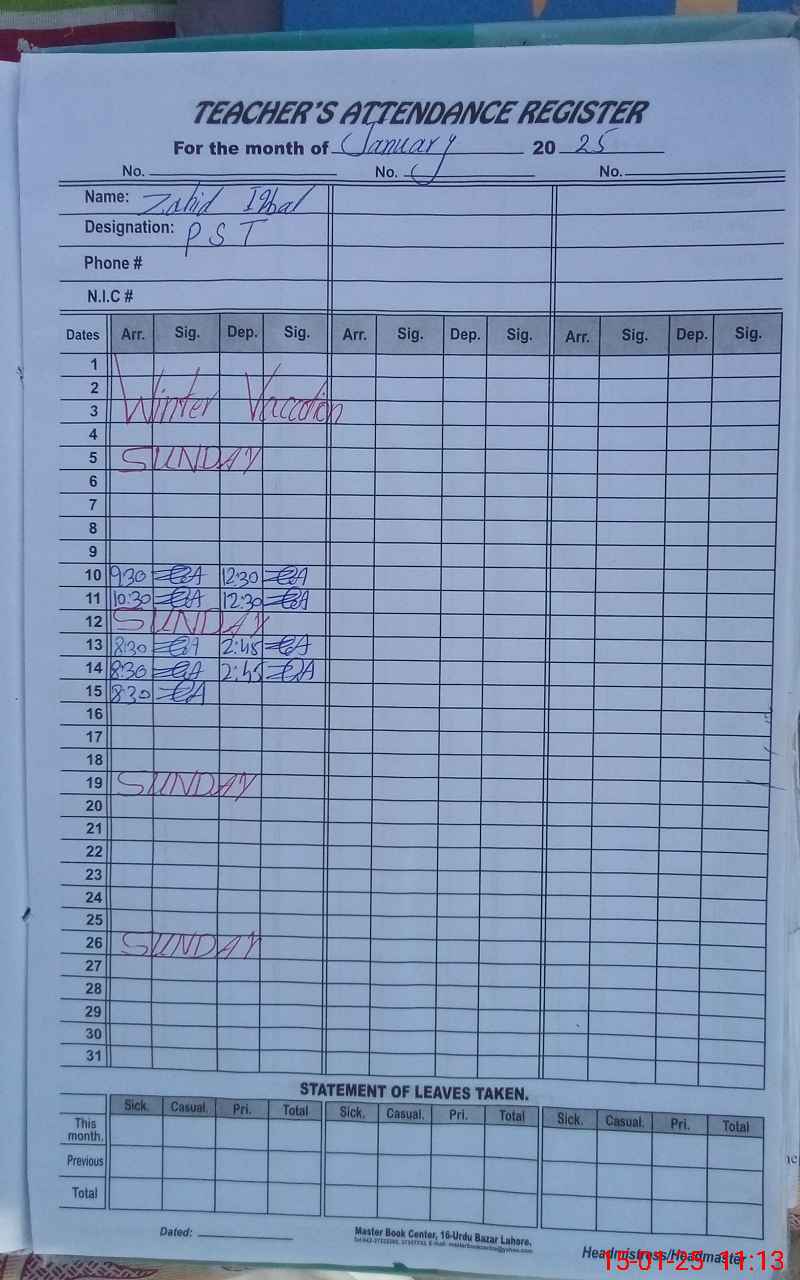 TEACHER'S ATTENDANCE REGISTER
For the month of January 20 25
No. No. No.
Name: Zahid Iqbal
Designation: PST
Phone #
N.I.C #
Dates Arr. Sig. Dep. Sig. Arr. Sig. Dep. Sig. Arr. Sig. Dep. Sig.
1
2
3 Winter Vaccation
4
5 SUNDAY
6
7
8
9
10 9:30 12:30
11 10:30 12:30
12 SUNDAY
13 8:30 2:45
14 8:30 2:45
15 8:30
16
17
18
19 SUNDAY
20
21
22
23
24
25
26 SUNDAY
27
28
29
30
31
STATEMENT OF LEAVES TAKEN.
Sick. Casual. Pri. Total Sick. Casual. Pri. Total Sick. Casual. Pri. Total
This month.
Previous
Total
Dated: Master Book Center, 16-Urdu Bazar Lahore.
Headmistress/Headmaster
15-01-25 11:13